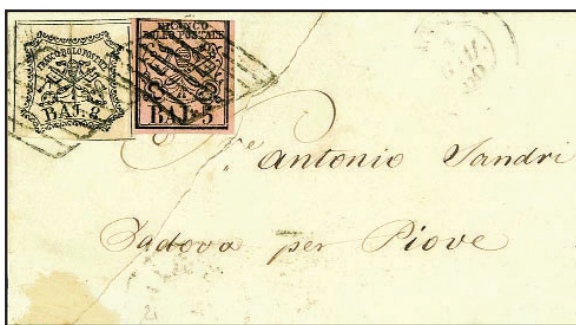 FRANCO BOLLO POSTALE
BAJ. 8
FRANCO
BOLLO POSTALE
BAJ. 5
Antonio Sandri
Padova per Piove